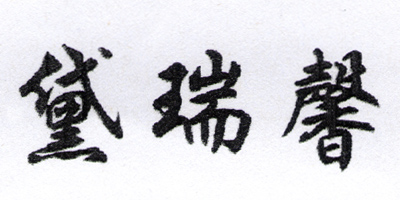 黛瑞馨